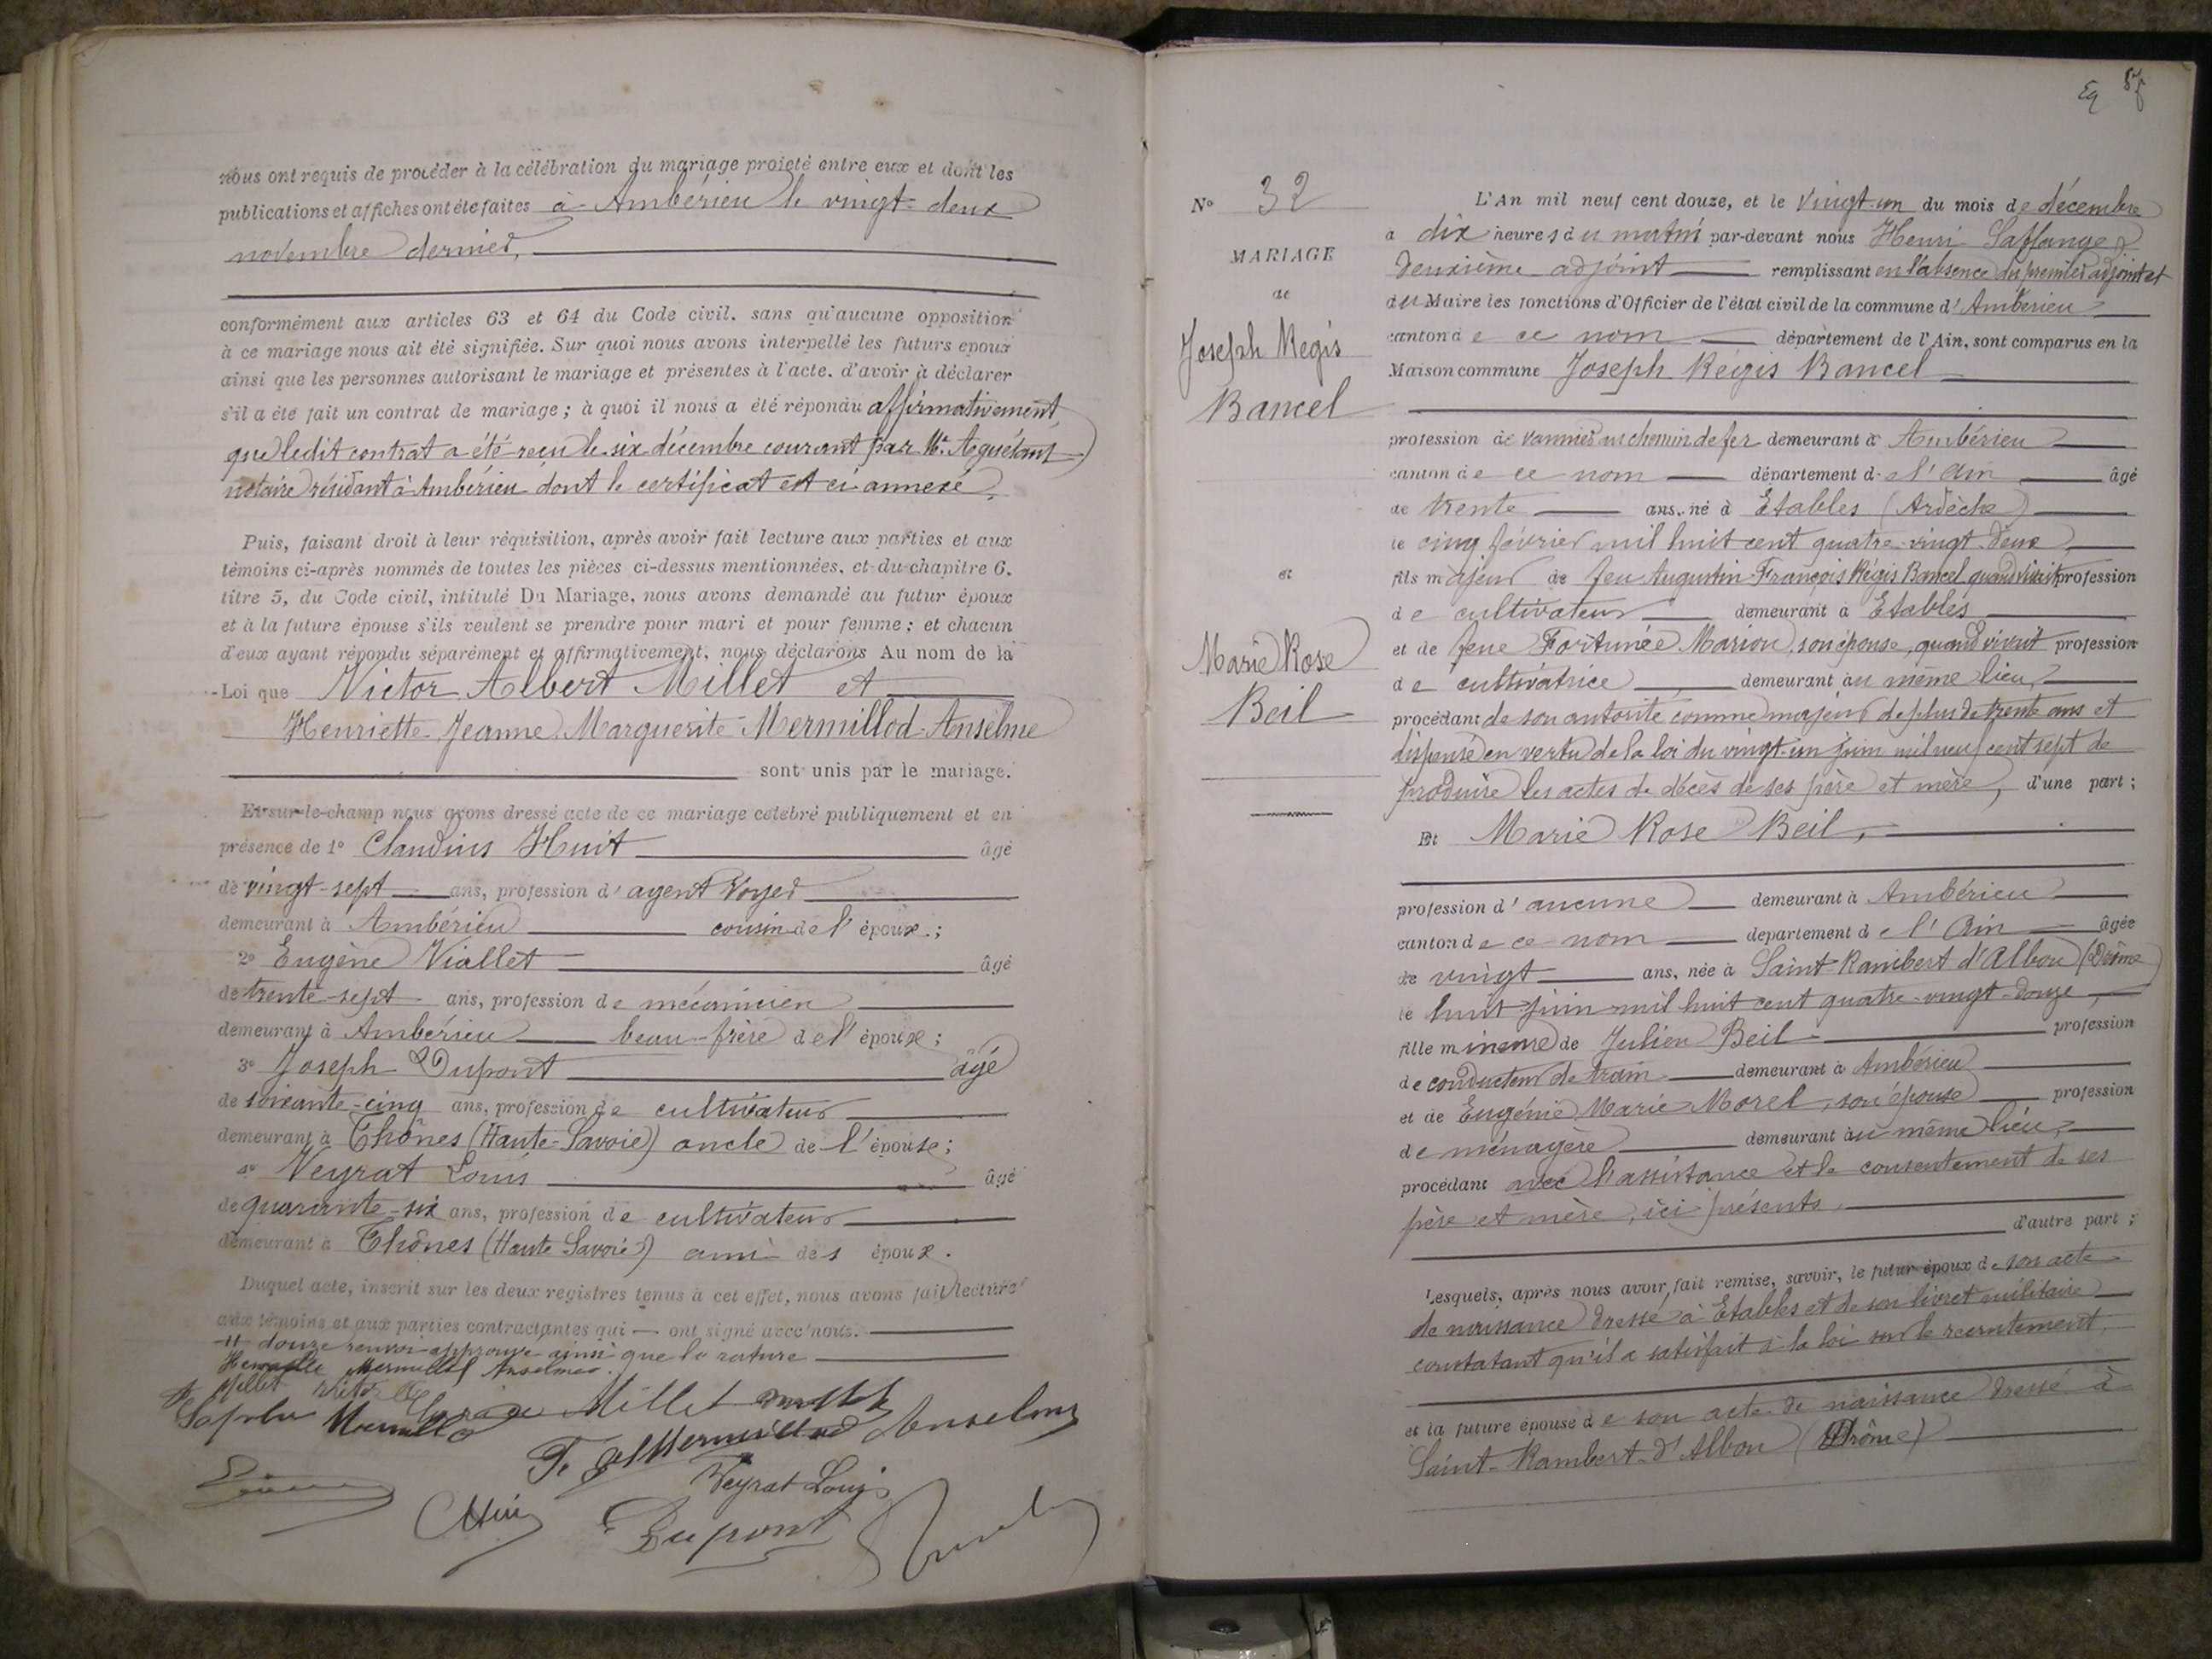 nous ont requis de procéder à la célébration du mariage projeté entre eux et dont les
publications et affiches ont été faites à Ambérieu le vingt-deux
novembre dernier,
conformément aux articles 63 et 64 du Code civil, sans qu'aucune opposition
à ce mariage nous ait été signifiée. Sur quoi nous avons interpellé les futurs époux
ainsi que les personnes autorisant le mariage et présentes à l'acte, d'avoir à déclarer
s'il a été fait un contrat de mariage ; à quoi il nous a été répondu affirmativement
que ledit contrat a été reçu le six décembre courant par Me Aguétant
notaire résidant à Ambérieu dont le certificat est ci-annexé.
Puis, faisant droit à leur réquisition, après avoir fait lecture aux parties et aux
témoins ci-après nommés de toutes les pièces ci-dessus mentionnées, et du chapitre 6,
titre 5, du Code civil, intitulé Du Mariage, nous avons demandé au futur époux
et à la future épouse s'ils veulent se prendre pour mari et pour femme ; et chacun
d'eux ayant répondu séparément et affirmativement, nous déclarons Au nom de la
Loi que Victor Albert Millet et
Henriette Jeanne Marguerite Mermillod-Anselme
sont unis par le mariage.
Et sur-le-champ nous avons dressé acte de ce mariage célébré publiquement et en
présence de 1° Claudius Huit âgé
de vingt-sept ans, profession d'agent voyer
demeurant à Ambérieu cousin de l'époux ;
2° Eugène Viallet âgé
de trente-sept ans, profession de mécanicien
demeurant à Ambérieu beau-frère de l'époux ;
3° Joseph Dupont âgé
de soixante-cinq ans, profession de cultivateur
demeurant à Thônes (Haute-Savoie) oncle de l'épouse ;
4° Veyrat Louis âgé
de quarante-six ans, profession de cultivateur
demeurant à Thônes (Haute Savoie) ami des époux.
Duquel acte, inscrit sur les deux registres tenus à cet effet, nous avons fait lecture
aux témoins et aux parties contractantes qui ont signé avec nous.
douze renvoi approuvé ainsi que la rature
Henriette Mermillod Anselme
Millet Victor
Millet
Mermillod Anselme
Veyrat Louis
Dupont
59
N° 32
MARIAGE
de
Joseph Régis
Bancel
et
Marie Rose
Beil
L'An mil neuf cent douze, et le vingt-un du mois de décembre
à dix heures du matin par-devant nous Henri Laffange
deuxième adjoint remplissant en l'absence du premier adjoint et
du Maire les fonctions d'Officier de l'état civil de la commune d'Ambérieu
canton de ce nom département de l'Ain, sont comparus en la
Maison commune Joseph Régis Bancel
profession de vannier au chemin de fer demeurant à Ambérieu
canton de ce nom département de l'Ain âgé
de trente ans, né à Etables (Ardèche)
le cinq février mil huit cent quatre-vingt-deux
fils majeur de feu Augustin François Régis Bancel quand vivait profession
de cultivateur demeurant à Etables
et de feue Fortunée Marion, son épouse, quand vivait profession
de cultivatrice demeurant au même lieu,
procédant de son autorité comme majeur de plus de trente ans et
dispensé en vertu de la loi du vingt-un juin mil neuf cent sept de
produire les actes de décès de ses père et mère, d'une part ;
Et Marie Rose Beil,
profession d'aucune demeurant à Ambérieu
canton de ce nom département de l'Ain âgée
de vingt ans, née à Saint-Rambert d'Albon (Drôme)
le huit juin mil huit cent quatre-vingt-douze,
fille mineure de Julien Beil profession
de conducteur de train demeurant à Ambérieu
et de Eugénie Marie Morel, son épouse profession
de ménagère demeurant au même lieu,
procédant avec l'assistance et le consentement de ses
père et mère, ici présents,
d'autre part ;
Lesquels, après nous avoir fait remise, savoir, le futur époux de son acte
de naissance dressé à Etables et de son livret militaire
constatant qu'il a satisfait à la loi sur le recrutement,
et la future épouse de son acte de naissance dressé à
Saint-Rambert-d'Albon (Drôme)